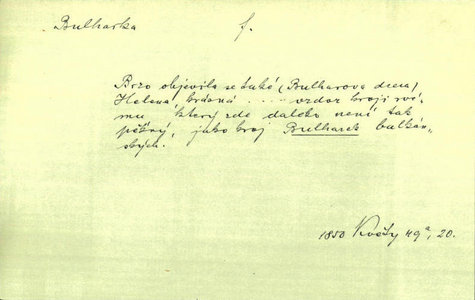 Bulharka f.
Brzo objevila se také (Bulharova dcera)
Helena krásná .... vzdor kroji své-
mu který zde daleko není tak
pěkný, jako kroj Bulharek balkán-
ských.
1850 Květy 49a, 20.